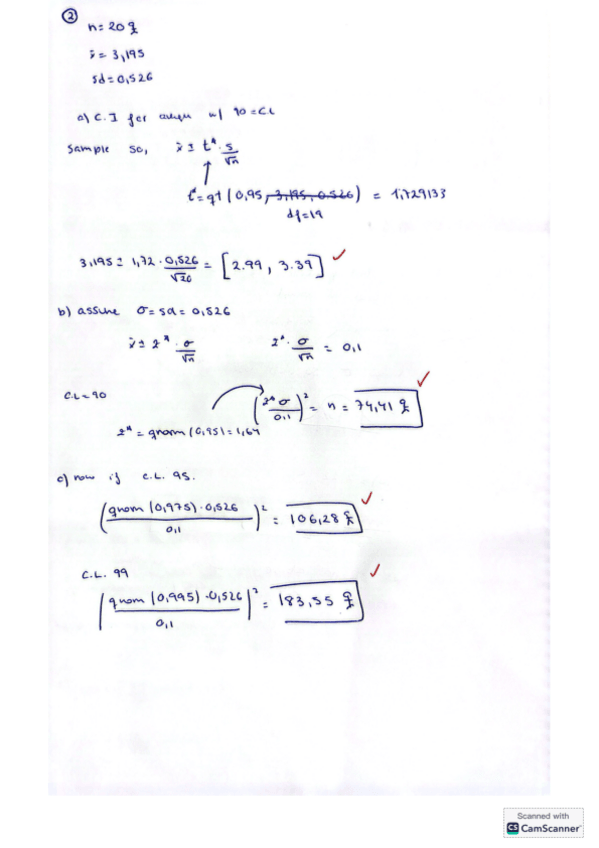 ②
n = 20 ♀
x̄ = 3,195
sd = 0,526
a) C.I for w/ 90 = CL
Sample so, x̄ ± t* · s/√n
t* = qt (0,95, 3,195, 0,526) = 1,729133
df = 19
3,195 ± 1,72 · 0,526/√20 = [2.99, 3.39] ✓
b) assume σ = sd = 0,526
x̄ ± z* · σ/√n    z* · σ/√n = 0,1
C.L = 90    (z* σ/0,1)² = n = 74,41 ♀ ✓
z* = qnorm (0,95) = 1,64
c) now if C.L. 95.
(qnorm (0,975) · 0,526/0,1)² = 106,28 ♀ ✓
C.L. 99
(qnorm (0,995) · 0,526/0,1)² = 183,55 ♀ ✓
Scanned with
CS CamScanner